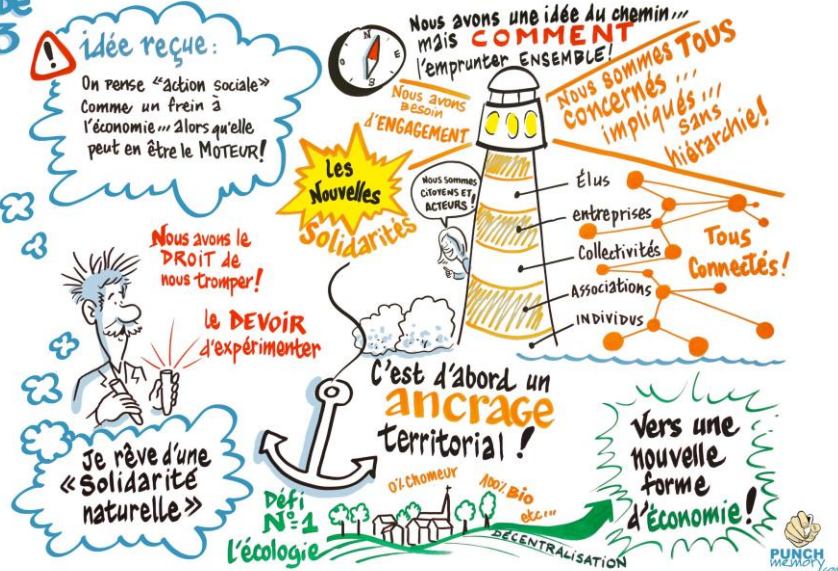 DE
3
idée reçue :
On pense "action sociale"
Comme un frein à
l'économie ,,, alors qu'elle
peut en être le MOTEUR !
N
E
S
O
Nous avons une idée du chemin ,,,
mais COMMENT
l'emprunter ENSEMBLE !
Nous avons
besoin
d'ENGAGEMENT
Nous sommes TOUS
concernés ,,,
impliqués ,,,
sans
hiérarchie !
Les
Nouvelles
Solidarités
Nous sommes
CITOYENS ET
ACTEURS !
Élus
entreprises
Collectivités
Associations
INDIVIDUS
Tous
Connectés !
Nous avons le
DROIT de
nous tromper !
le DEVOIR
d'expérimenter
Je rêve d'une
« Solidarité
naturelle »
C'est d'abord un
ancrage
territorial !
Défi
N°1
l'écologie
0% Chomeur
100% Bio
etc ...
DÉCENTRALISATION
Vers une
nouvelle
forme
d'Économie !
PUNCH
memory
.com